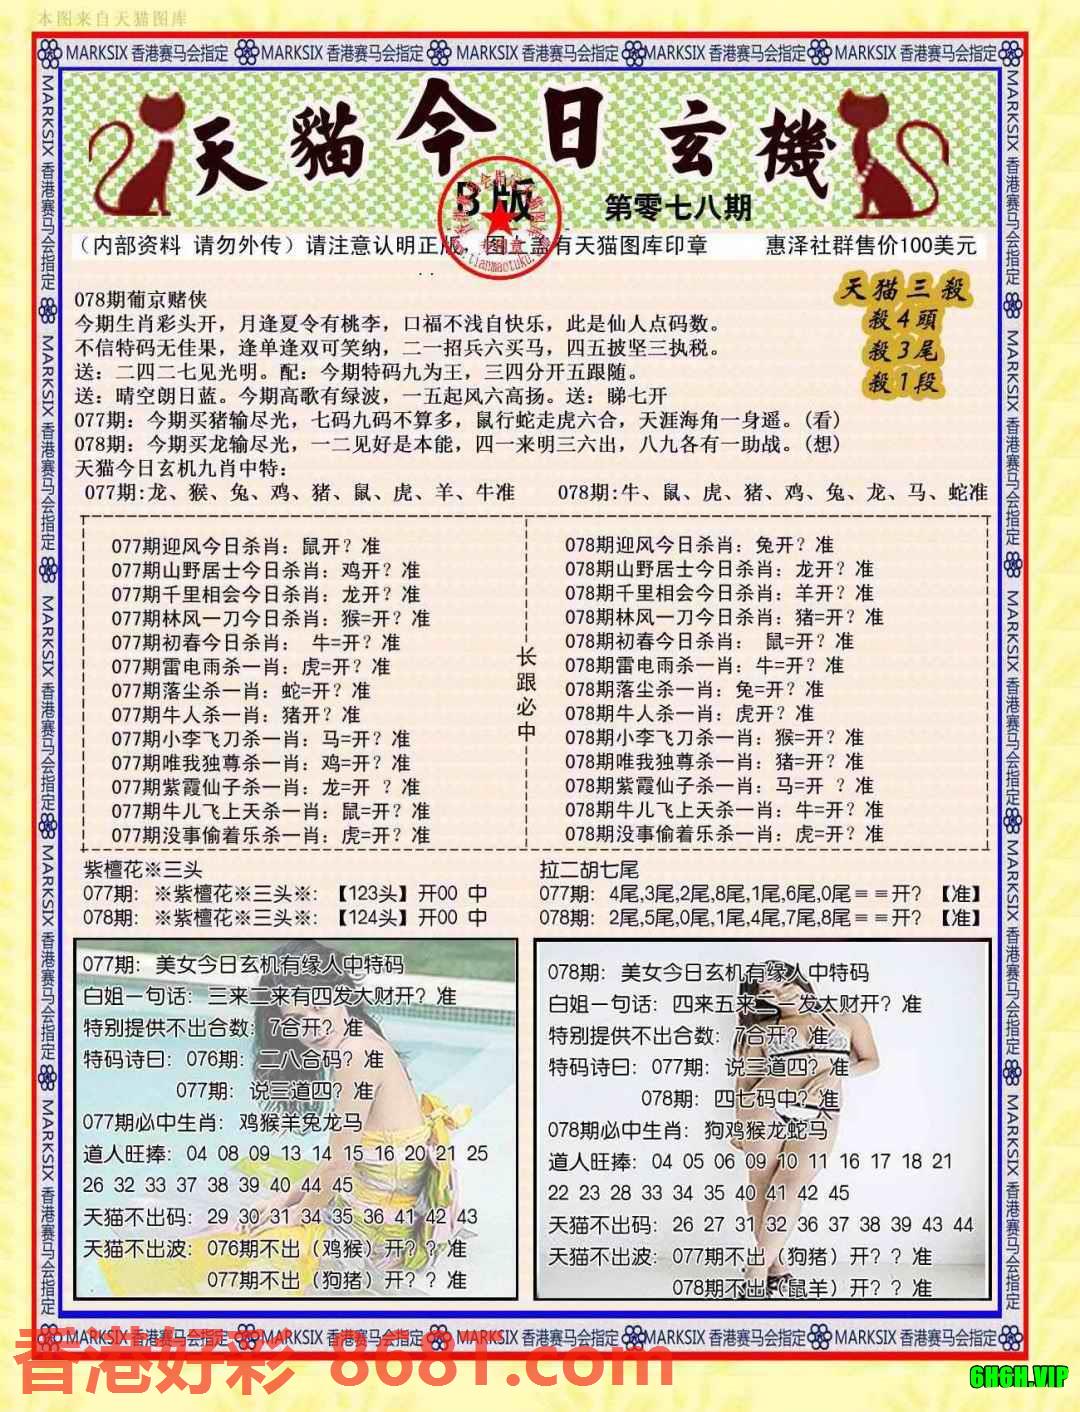 本图来自天猫图库
MARKSIX 香港赛马会指定 MARKSIX 香港赛马会指定 MARKSIX 香港赛马会指定 MARKSIX 香港赛马会指定 MARKSIX 香港赛马会指定
天貓今日玄機
B版 第零七八期
（内部资料 请勿外传）请注意认明正版，图上盖有天猫图库印章 惠泽社群售价100美元
天猫三殺
殺4頭
殺3尾
殺1段
078期葡京赌侠
今期生肖彩头开，月逢夏令有桃李，口福不浅自快乐，此是仙人点码数。
不信特码无佳果，逢单逢双可笑纳，二一招兵六买马，四五披坚三执税。
送：二四二七见光明。配：今期特码九为王，三四分开五跟随。
送：晴空朗日蓝。今期高歌有绿波，一五起风六高扬。送：睇七开
077期：今期买猪输尽光，七码九码不算多，鼠行蛇走虎六合，天涯海角一身遥。(看)
078期：今期买龙输尽光，一二见好是本能，四一来明三六出，八九各有一助战。(想)
天猫今日玄机九肖中特：
077期:龙、猴、兔、鸡、猪、鼠、虎、羊、牛准 078期:牛、鼠、虎、猪、鸡、兔、龙、马、蛇准
077期迎风今日杀肖：鼠开？准
077期山野居士今日杀肖：鸡开？准
077期千里相会今日杀肖：龙开？准
077期林风一刀今日杀肖：猴=开？准
077期初春今日杀肖： 牛=开？准
077期雷电雨杀一肖：虎=开？准
077期落尘杀一肖：蛇=开？准
077期牛人杀一肖：猪开？准
077期小李飞刀杀一肖：马=开？准
077期唯我独尊杀一肖：鸡=开？准
077期紫霞仙子杀一肖：龙=开 ？准
077期牛儿飞上天杀一肖：鼠=开？准
077期没事偷着乐杀一肖：虎=开？准
长跟必中
078期迎风今日杀肖：兔开？准
078期山野居士今日杀肖：龙开？准
078期千里相会今日杀肖：羊开？准
078期林风一刀今日杀肖：猪=开？准
078期初春今日杀肖： 鼠=开？准
078期雷电雨杀一肖：牛=开？准
078期落尘杀一肖：兔=开？准
078期牛人杀一肖：虎开？准
078期小李飞刀杀一肖：猴=开？准
078期唯我独尊杀一肖：猪=开？准
078期紫霞仙子杀一肖：马=开 ？准
078期牛儿飞上天杀一肖：牛=开？准
078期没事偷着乐杀一肖：虎=开？准
紫檀花※三头
077期：※紫檀花※三头※：【123头】开00 中
078期：※紫檀花※三头※：【124头】开00 中
拉二胡七尾
077期：4尾,3尾,2尾,8尾,1尾,6尾,0尾＝＝开？【准】
078期：2尾,5尾,0尾,1尾,4尾,7尾,8尾＝＝开？【准】
077期：美女今日玄机有缘人中特码
白姐一句话：三来二来有四发大财开？准
特别提供不出合数：7合开？准
特码诗曰：076期：二八合码？准
077期：说三道四？准
077期必中生肖：鸡猴羊兔龙马
道人旺捧：04 08 09 13 14 15 16 20 21 25
26 32 33 37 38 39 40 44 45
天猫不出码：29 30 31 34 35 36 41 42 43
天猫不出波：076期不出（鸡猴）开？？准
077期不出（狗猪）开？？准
078期：美女今日玄机有缘人中特码
白姐一句话：四来五来二一发大财开？准
特别提供不出合数：7合开？准
特码诗曰：077期：说三道四？准
078期：四七码中？准
078期必中生肖：狗鸡猴龙蛇马
道人旺捧：04 05 06 09 10 11 16 17 18 21
22 23 28 33 34 35 40 41 42 45
天猫不出码：26 27 31 32 36 37 38 39 43 44
天猫不出波：077期不出（狗猪）开？？准
078期不出（鼠羊）开？？准
MARKSIX 香港赛马会指定 MARKSIX 香港赛马会指定 MARKSIX 香港赛马会指定 MARKSIX 香港赛马会指定 MARKSIX 香港赛马会指定
香港好彩 8681.com
6HGH.VIP